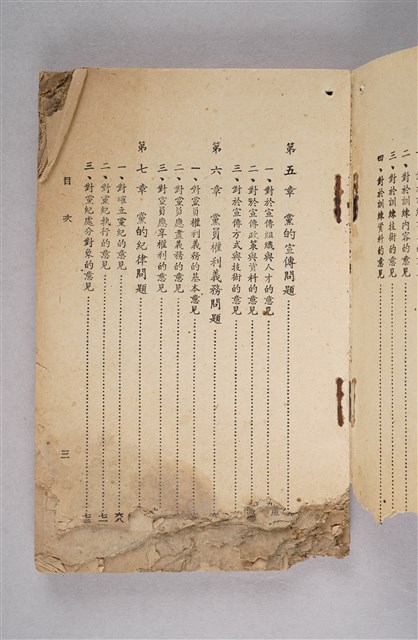 二、對於訓練內容的意見
三、對於訓練技術的意見
四、對於訓練資料的意見
第五章 黨的宣傳問題
一、對於宣傳組織與人才的意見
二、對於宣傳政策與資料的意見
三、對於宣傳方式與技術的意見
第六章 黨員權利義務問題
一、對黨員權利義務的基本意見
二、對黨員應盡義務的意見
三、對黨員應享權利的意見
第七章 黨的紀律問題
一、對確立黨紀的意見 六八
二、對黨紀執行的意見 七一
三、對黨紀處分對象的意見 七三
目次
三